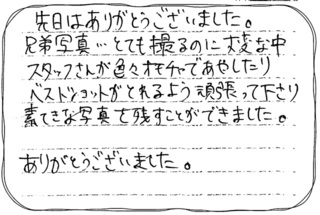 先日はありがとうございました。
兄弟写真…とても撮るのに大変な中
スタッフさんが色々オモチャであやしたり
ベストショットがとれるよう頑張って下さり
素てきな写真で残すことができました。
ありがとうございました。